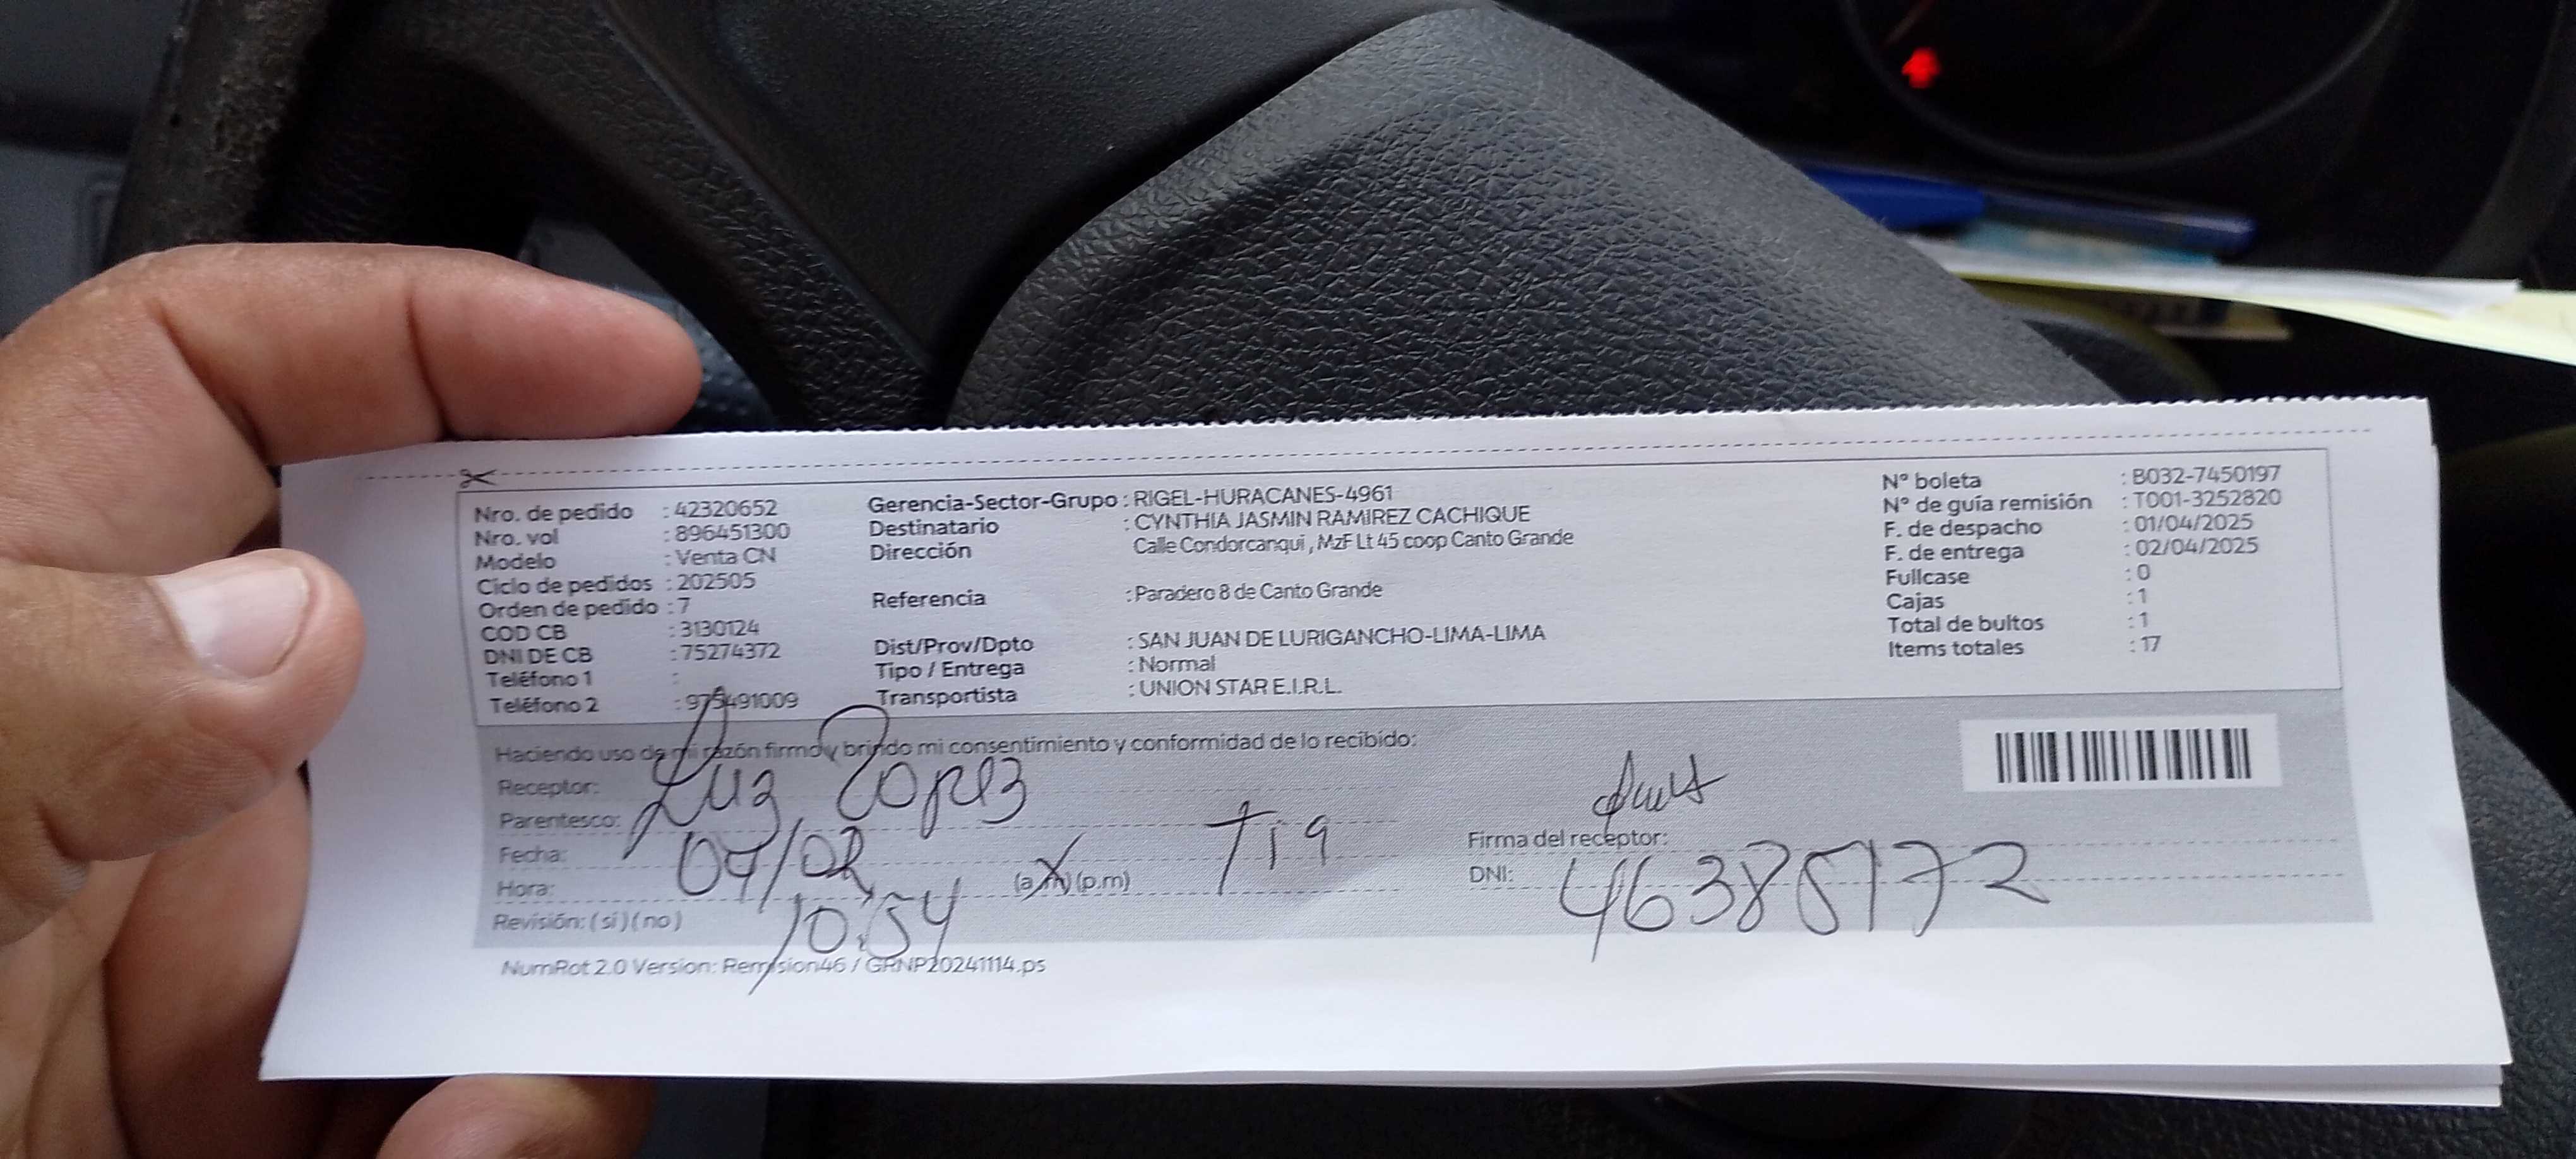 Nro. de pedido : 42320652
Nro. vol : 896451300
Modelo : Venta CN
Ciclo de pedidos : 202505
Orden de pedido : 7
COD CB : 3130124
DNI DE CB : 75274372
Teléfono 1 :
Teléfono 2 : 975491009
Gerencia-Sector-Grupo : RIGEL-HURACANES-4961
Destinatario : CYNTHIA JASMIN RAMIREZ CACHIQUE
Dirección Calle Condorcanqui , MzF Lt 45 coop Canto Grande
Referencia : Paradero 8 de Canto Grande
Dist/Prov/Dpto : SAN JUAN DE LURIGANCHO-LIMA-LIMA
Tipo / Entrega : Normal
Transportista : UNION STAR E.I.R.L.
N° boleta : B032-7450197
N° de guía remisión : T001-3252820
F. de despacho : 01/04/2025
F. de entrega : 02/04/2025
Fullcase : 0
Cajas : 1
Total de bultos : 1
Items totales : 17
Haciendo uso de mi razón firmo y brindo mi consentimiento y conformidad de lo recibido:
Receptor: Luz Lopez
Parentesco: Tia
Fecha: 04/02
Hora: 10:54 (a.m) (p.m)
Revisión: (si) (no)
Firma del receptor:
DNI: 46385172
NumRot 2.0 Version: Remision46 / GRNP20241114.ps